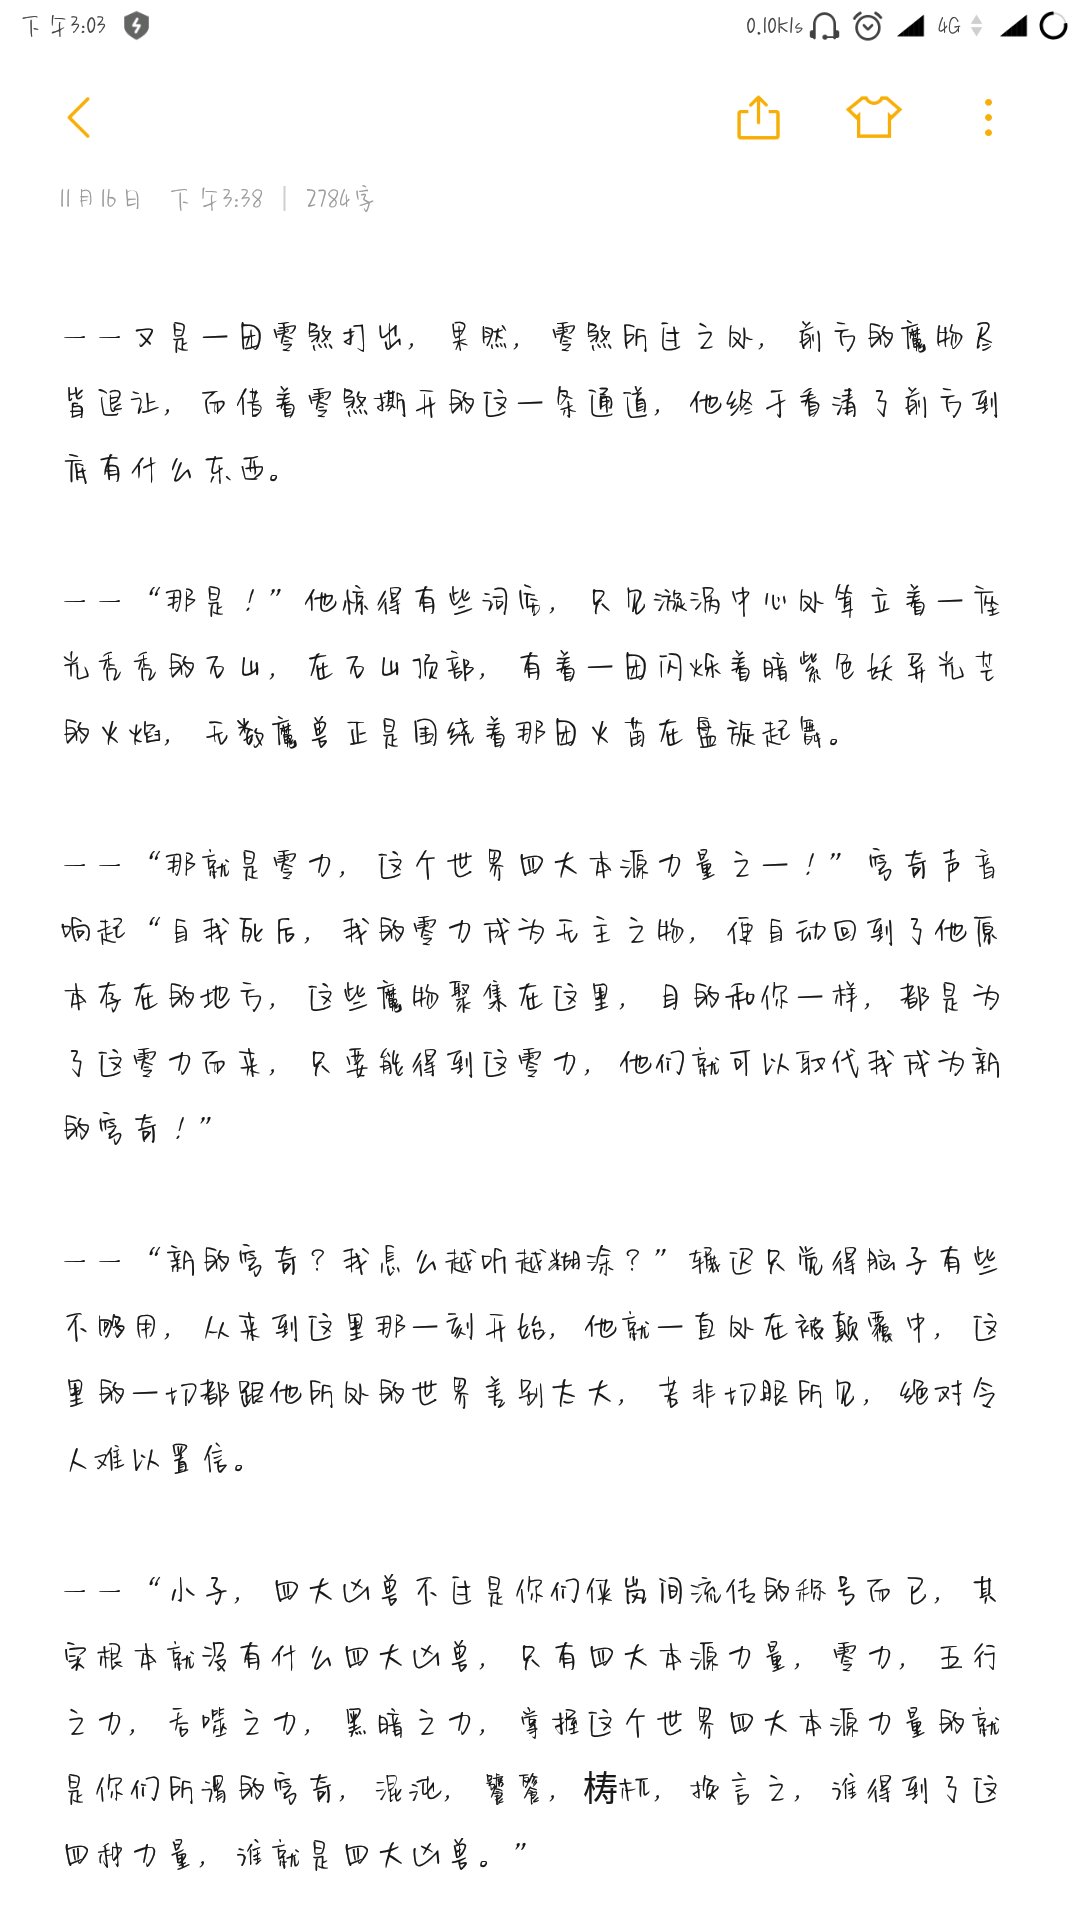 下午3:03
0.10K/s 4G
11月16日 下午3:38 | 2784字
一一又是一团零煞打出，果然，零煞所过之处，前方的魔物尽
皆退让，而借着零煞撕开的这一条通道，他终于看清了前方到
底有什么东西。
一一“那是！”他惊得有些词穷，只见漩涡中心处耸立着一座
光秃秃的石山，在石山顶部，有着一团闪烁着暗紫色妖异光芒
的火焰，无数魔兽正是围绕着那团火苗在盘旋起舞。
一一“那就是零力，这个世界四大本源力量之一！”穷奇声音
响起“自我死后，我的零力成为无主之物，便自动回到了他原
本存在的地方，这些魔物聚集在这里，目的和你一样，都是为
了这零力而来，只要能得到这零力，他们就可以取代我成为新
的穷奇！”
一一“新的穷奇？我怎么越听越糊涂？”辗迟只觉得脑子有些
不够用，从来到这里那一刻开始，他就一直处在被颠覆中，这
里的一切都跟他所处的世界差别太大，若非切眼所见，绝对令
人难以置信。
一一“小子，四大凶兽不过是你们侠岚间流传的称号而已，其
实根本就没有什么四大凶兽，只有四大本源力量，零力，五行
之力，吞噬之力，黑暗之力，掌握这个世界四大本源力量的就
是你们所谓的穷奇，混沌，饕餮，梼杌，换言之，谁得到了这
四种力量，谁就是四大凶兽。”